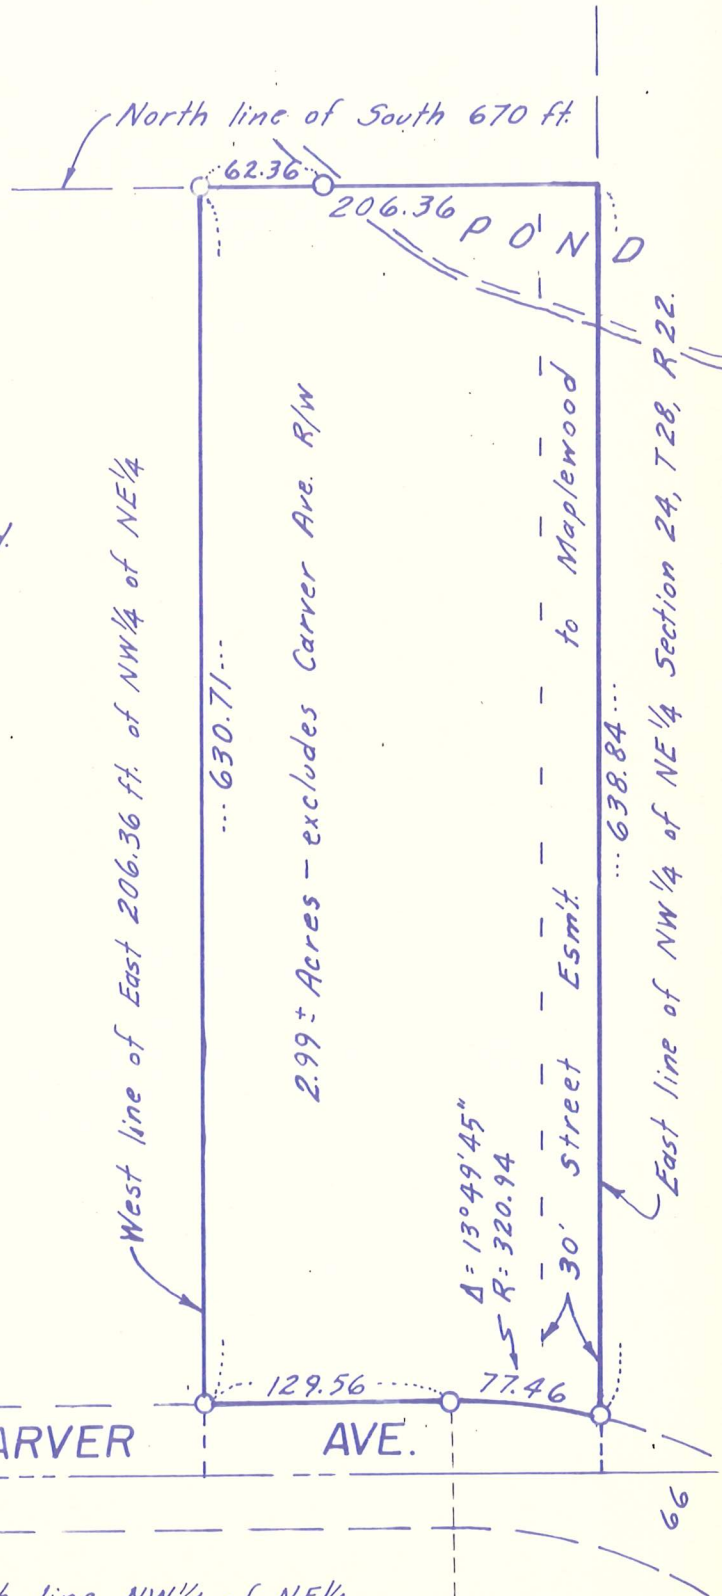 North line of South 670 ft.
62.36
206.36
POND
West line of East 206.36 ft. of NW¼ of NE¼
...630.71...
2.99± Acres – excludes Carver Ave. R/W
30' Street Esm't. to Maplewood
...638.84...
East line of NW¼ of NE¼ Section 24, T28, R22.
Δ = 13°49'45"
R = 320.94
129.56
77.46
ARVER AVE.
66
line NW¼ of NE¼